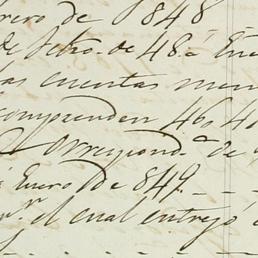 rero de 1848
de Febro. de 48. a Ene
as cuentas men
comprenden 46, 4
Correspond.a de
i Enero de 849. - - -
r.n el cual entregó